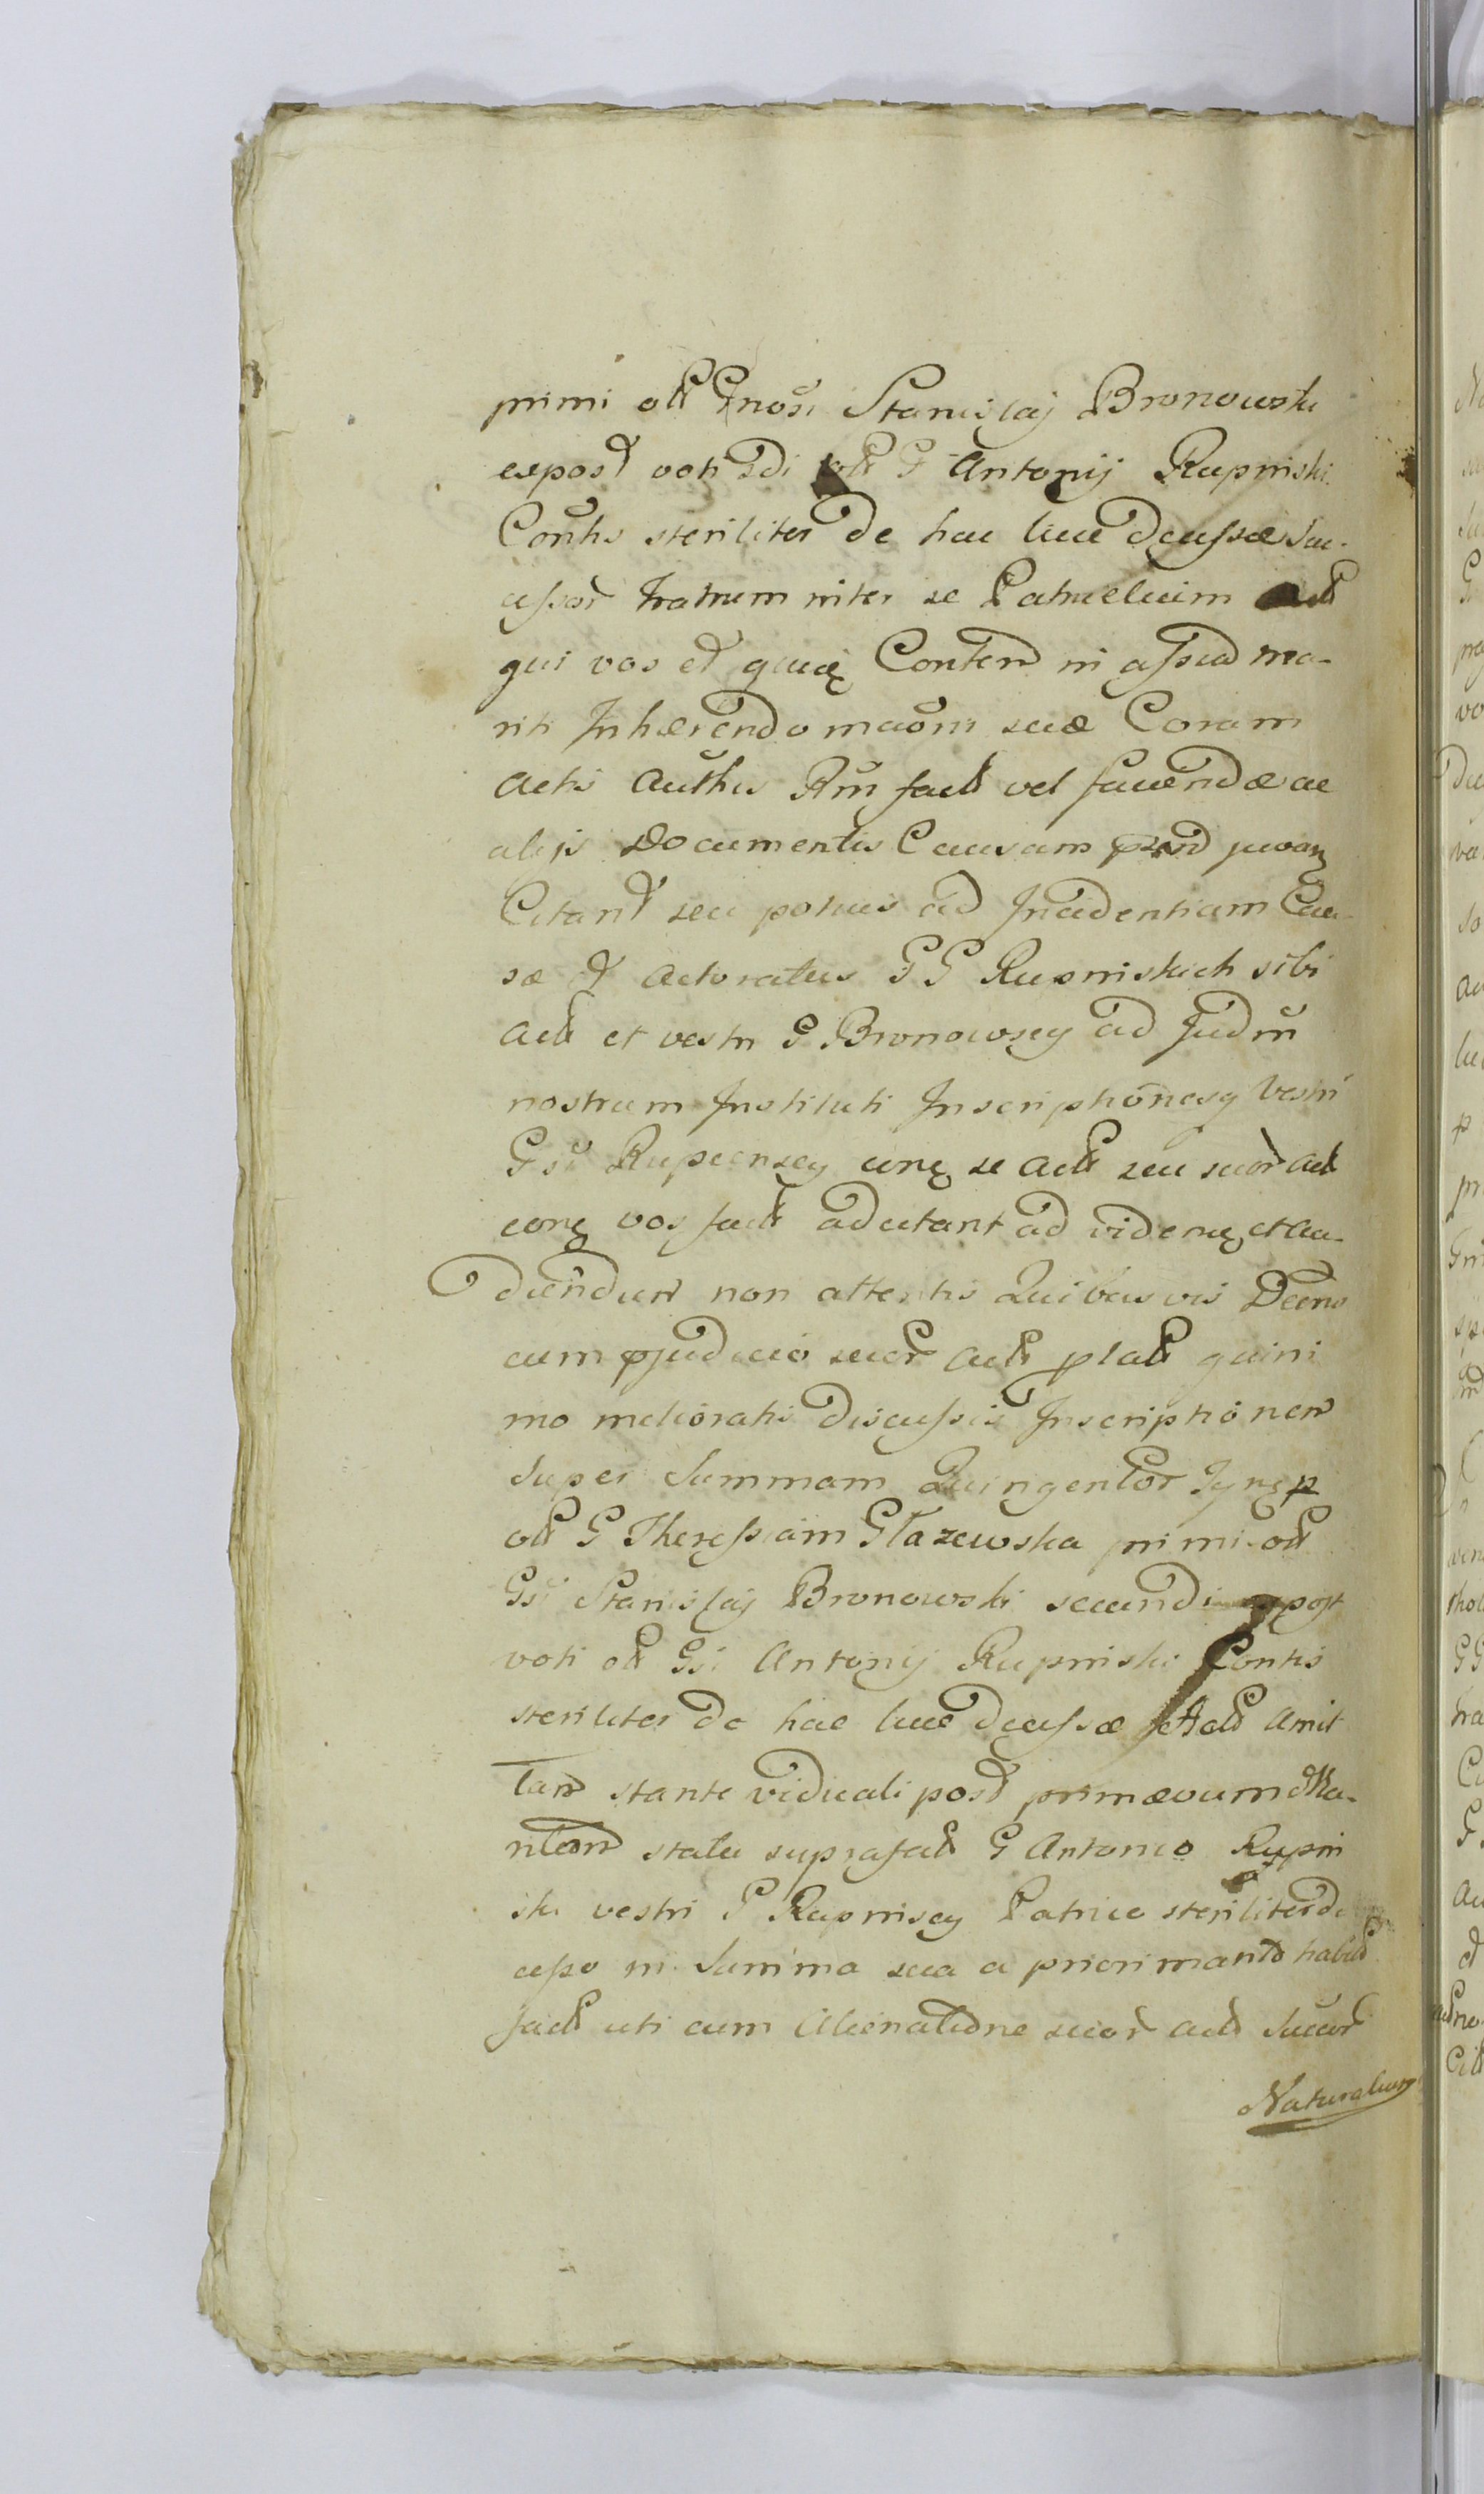 primi olt Gnosi Stanislaj Bronowski
expost voti 2di olt G Antonij Rupinski
Conthis steriliter de hac luce decessae Suc-
cessor Fratrum inter se Patruelium Act
qui vos et quemq Contend in assuad ma-
riti Inhaerendo maõni suae Coram
Actis Authis Rñi factt vel faciendae ac
alijs Documentis Causam pzend juvan
Citand seu potius ad Incidentiam Cau-
sae et Actoratus G G Rupinskich sibi
Actt et vestri G Bronowscy ad Judm̃
nostrum Instituti Inscriptionesq vestri
Gsi Rupienscy cunq se Actt seu suor Act
conq vos factt adcitant ad videnq et au-
diendum non attentis Quibusvis Decris
cum pjudicio suor Actt platt quini
mo melioratis discussis Inscriptionem
super Summam Quingentor Tynf p
olt G Theressiam Głazewska primi olt
Gsi Stanislaj Bronowski secundi expost
voti olt Gsi Antonij Rupinski Contis
steriliter de hac luce decessae Actt Amit
tam stante viduali post primaevum Ma-
ritom statu suprafatt G Antonio Rupin
ski vestri G Rupinscy Patruo steriliter de
cesso in Summa sua a priori marito habitt
factt uti cum Alienatione suor Actt Succor
Naturalium